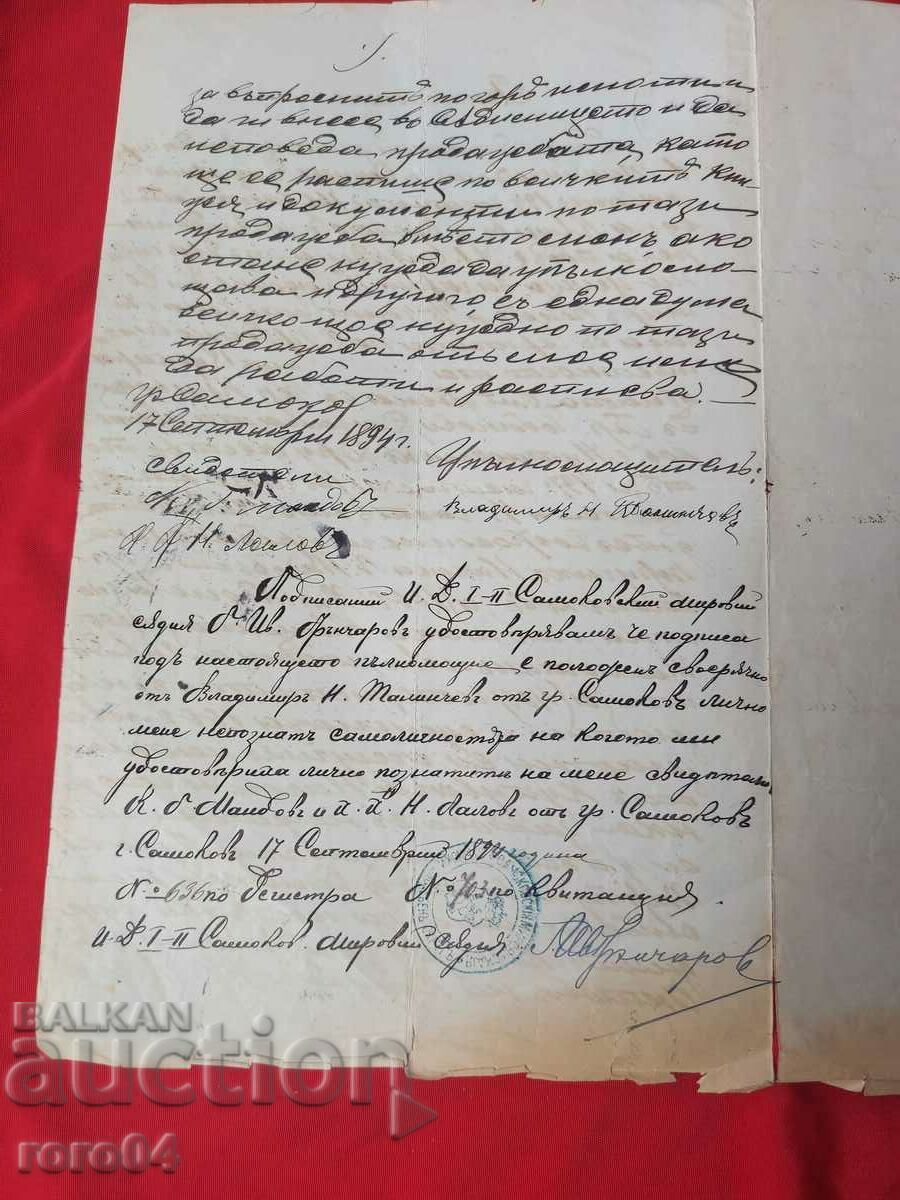 за въпроснитѣ по горѣ имоти и
да ги внесе въ Сѫдилището и да
исповеда продажбата, като
ще се распише по всичкитѣ кни-
жа и документи по тази
продажба вмѣсто менъ, ако
стане нужда да упълномо-
щава и другиго, съ една дума
всичко що е нуждно по тази
продажба отъ моя
да работи и расписва.
гр. Самоков
17 Септемврий 1894 г.
свидетели
Упълномощителъ:
Владимиръ Н.
Н. Лаловъ
Подписаний И. Д. I-II Самоковский мировий
сѫдия Г. Ив. Грънчаровъ удостовѣрявамъ че подписа
подъ настоящето пълномощно е положенъ своерѫчно
отъ Владимиръ Н. отъ гр. Самоковъ лично
мене непознатъ самоличностьта на когото ми
удостовѣриха лично познатитѣ на мене свидѣтели
К. Г. Мандовъ и Н. Лаловъ отъ гр. Самоковъ
г. Самоковъ 17 Септемврий 1894 година
№ 636 по Регистра № 703 по Квитанция
И. Д. I-II Самоков. Мировий Сѫдия Грънчаров
BALKAN
auction
roro04